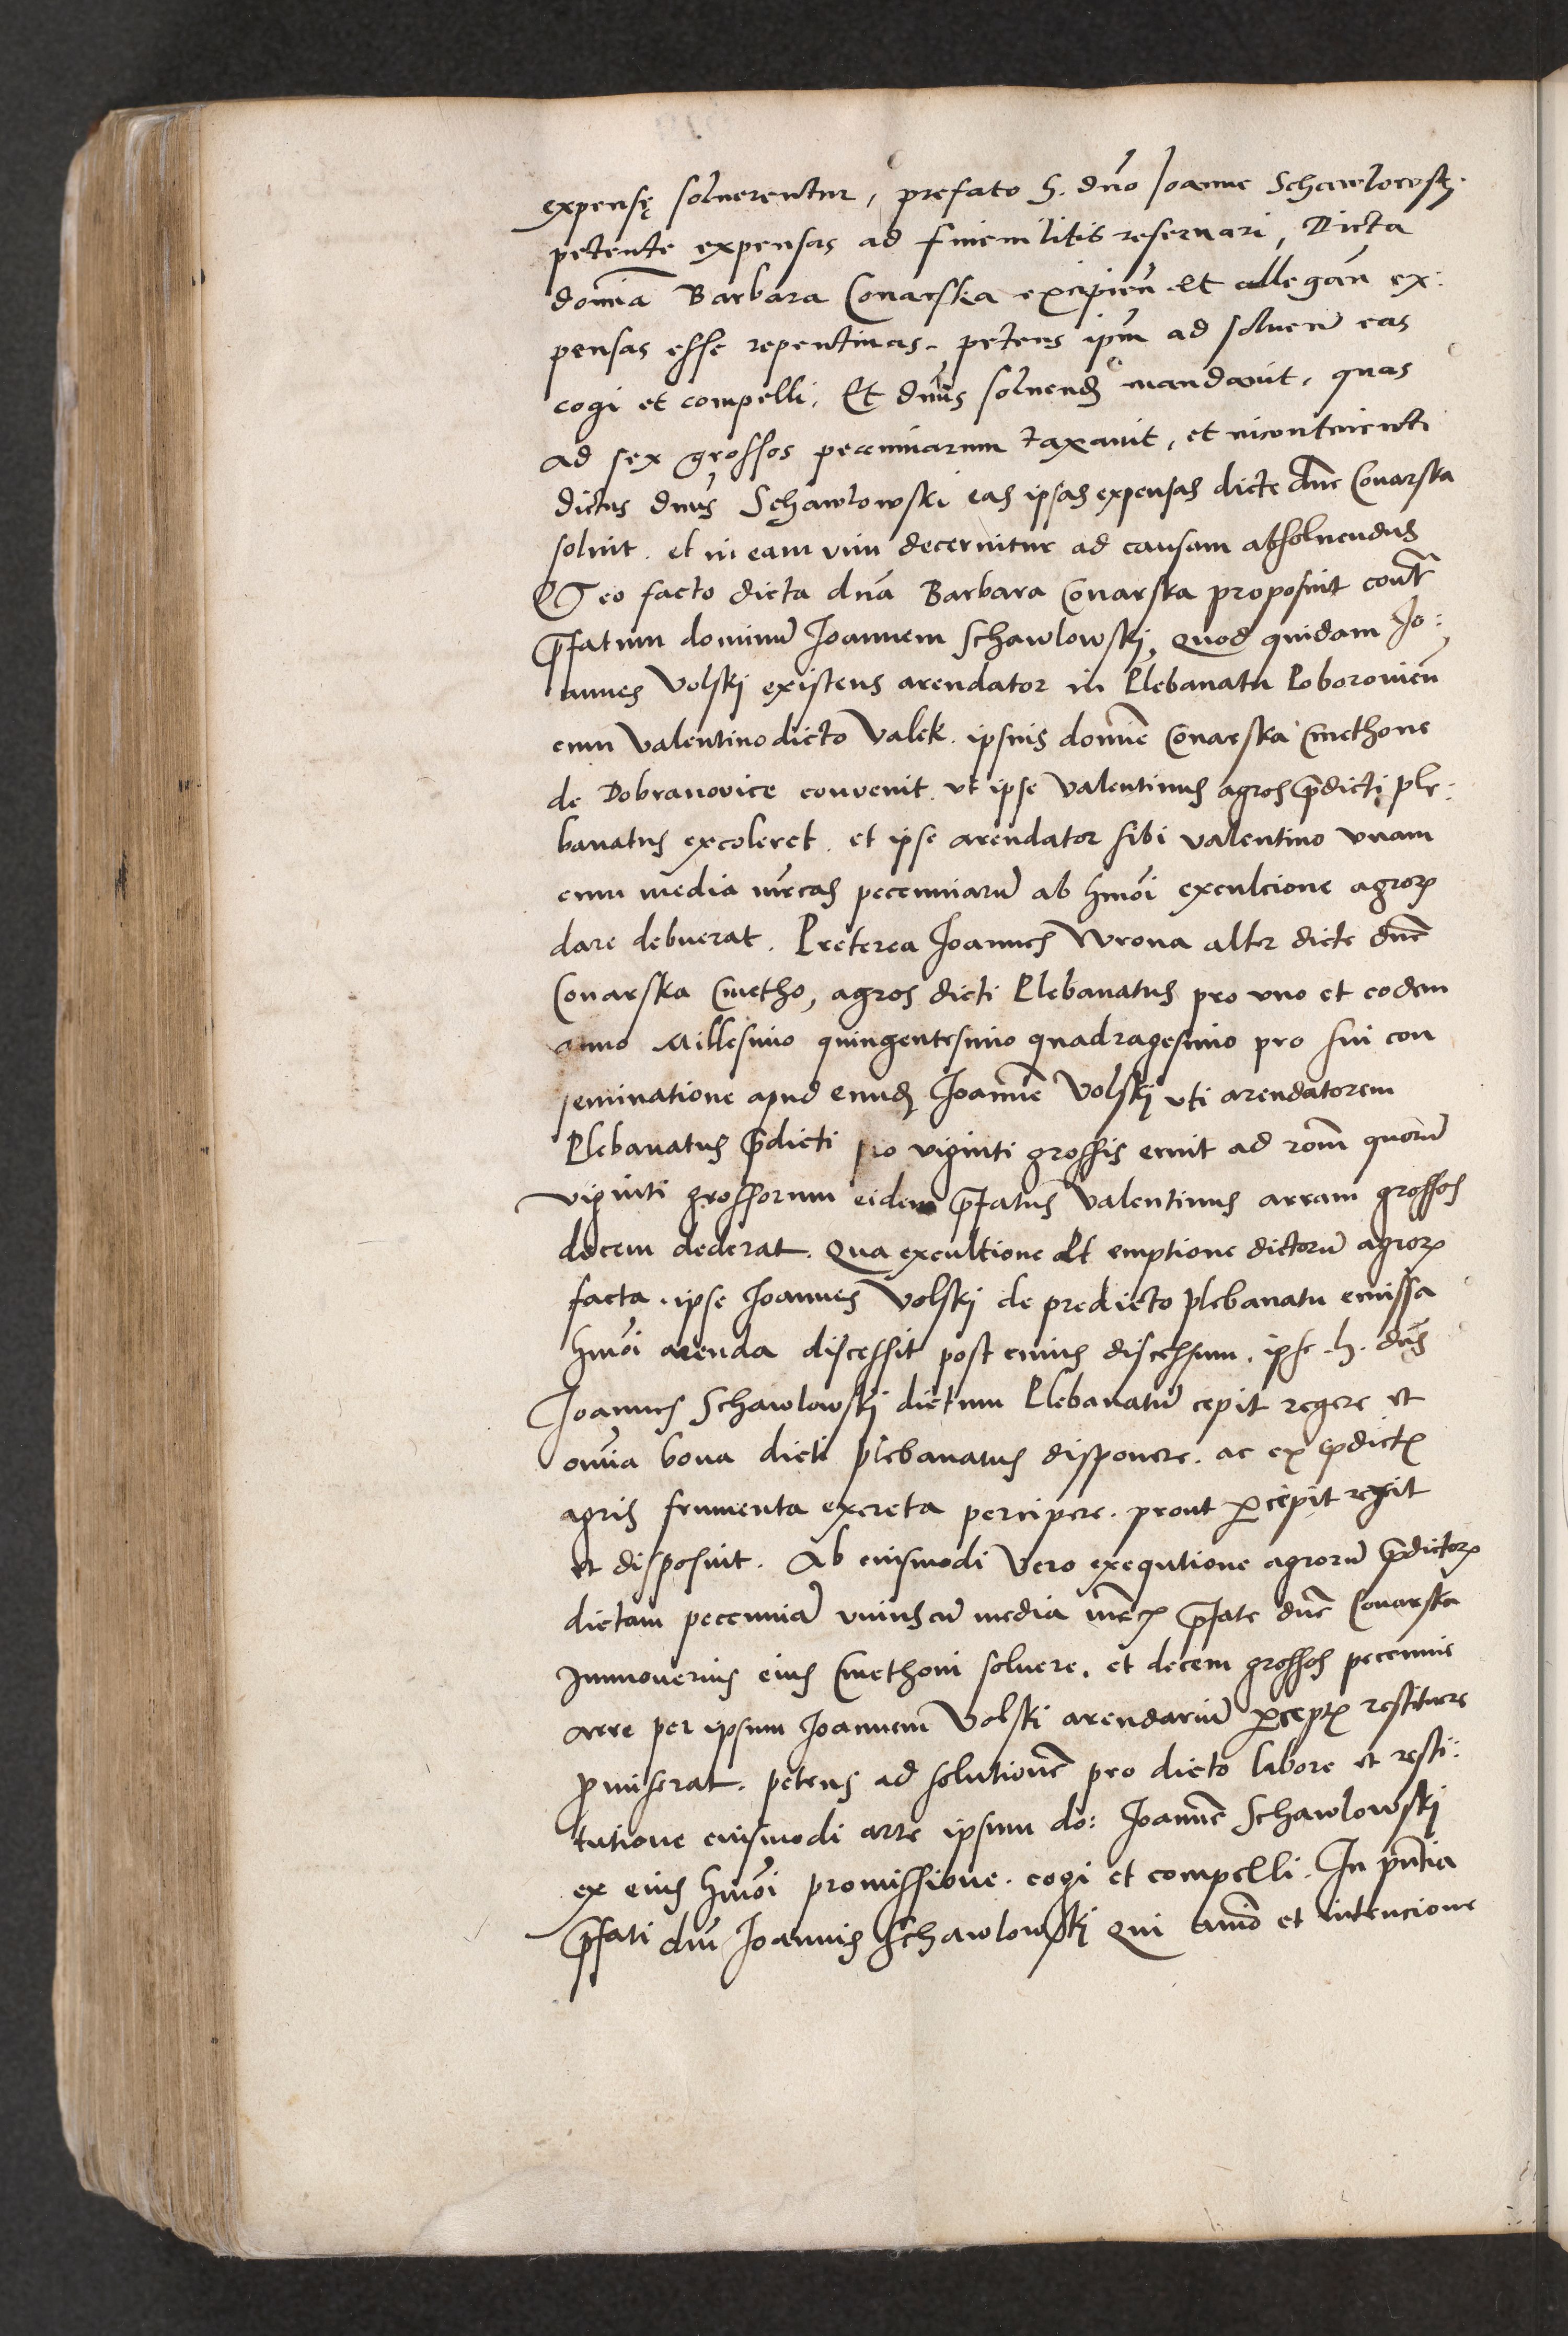 expensę soluerentur, prefato h. dno Joanne Schawlowskj.
petente expensas ad finem litis reseruari, Dicta
domina Barbara Conarska excipien et allegan ex:
pensas esse repentinas. petens ipm ad soluend eas
cogi et compelli. Et dnus soluendas mandauit, quas
ad sex grossos pecuniarum taxauit, et incontinenti
dictus dnus Schawlowski eas ipsas expensas dicte dne Conarska
soluit. et in eam vim decernitur ad causam absoluendus
Quo facto dicta dna Barbara Conarska proposuit contra
prefatum dominu Joannem Schawlowskj, Quod quidam Jo:
annes Volskj existens arendator in Plebanatu Poboronien
cum Valentino dicto Valek. ipsius domine Conarska Cmethone
de Dobranovice convenit. ut ipse Valentinus agros predicti ple:
banatus excoleret. et ipse arendator sibi valentino vnam
cum media mrcas pecenniaru ab hmoi exculcione agrorum
dare debuerat. Preterea Joannes Wrona alter dicte dne
Conarska Cmetho, agros dicti Plebanatus pro vno et eodem
anno Millesimo quingentesimo quadragesimo pro sui con
seminatione apud eundem Joanne Volskj uti arendatorem
Plebanatus predicti pro viginti grossis emit ad rom quoru
viginti grossorum eidem prefatus Valentinus arram grossos
decem dederat. Qua excultione et emptione dictoru agrorum
facta. ipse Joannes Volskj de predicto plebanatu emissa
hmoi arenda discessit post cuius discessum. ipse h. dns
Joannes Schawlowskj dictum Plebanatu cepit regere et
omnia bona dicti plebanatus disponere. ac ex predictis
agris frumenta excreta percipere. prout percepit rexit
et disposuit. Ab eiusmodi vero exequtione agroru predictorum
dictam pecennia vnius cu media mrce prefate dne Conarska
Junioverius eius Cmethoni soluere. et decem grossos pecennie
arre per ipsum Joannem Volski arendariu perceptos restituere
promiserat. petens ad solutione pro dicto labore et resti:
tutione eiusmodi arre ipsum do: Joanne Schawlowskj
ex eius hmoi promissione. cogi et compelli. In pntia
prefati dni Joannis Schawlowskj Qui animo et intencione